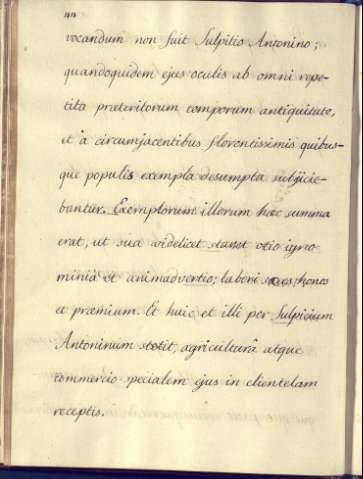 vocandum non fuit Sulpitio Antonino;
quandoquidem ejus oculis ab omni repe-
tita præteritorum temporum antiquitate,
et à circumjacentibus florentissimis quibus-
que populis exempla desumpta subjicie-
bantur. Exemplorum illorum hæc summa
erat, ut sua videlicet staret otio igno
minia et animadvertio; labori honos
et præmium. Et huic et illi per Sulpicium
Antoninum stetit, agriculturâ atque
commercio specialem ejus in clientelam
receptis.